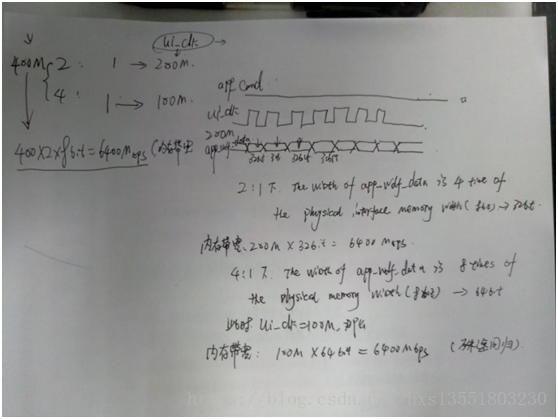 ui_clk →
400M { 2 : 1 → 200M.
4 : 1 → 100M.
400 X 2 x 8 bit = 6400 Mbps (内存带宽
app_cmd
ui_clk
200M
app_wdf_data
32bit 32bit 32bit
2:1下. The width of app_wdf_data is 4 time of
the physical interface memory width (8bit) → 32bit.
内存带宽: 200M X 32bit = 6400 Mbps.
4:1下. The width of app_wdf_data is 8 times of
the physical memory width (8bit) → 64bit
ui_clk=100M,
内存带宽: 100M X 64bit = 6400Mbps (殊途同归).
https://blog.csdn.net/lxs13551803230